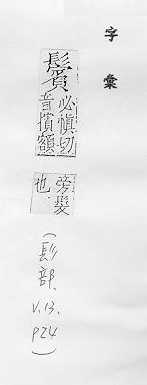 字彙
鬢
必慎切
音擯額
旁髮
也
(髟部.
V.13.
P24)